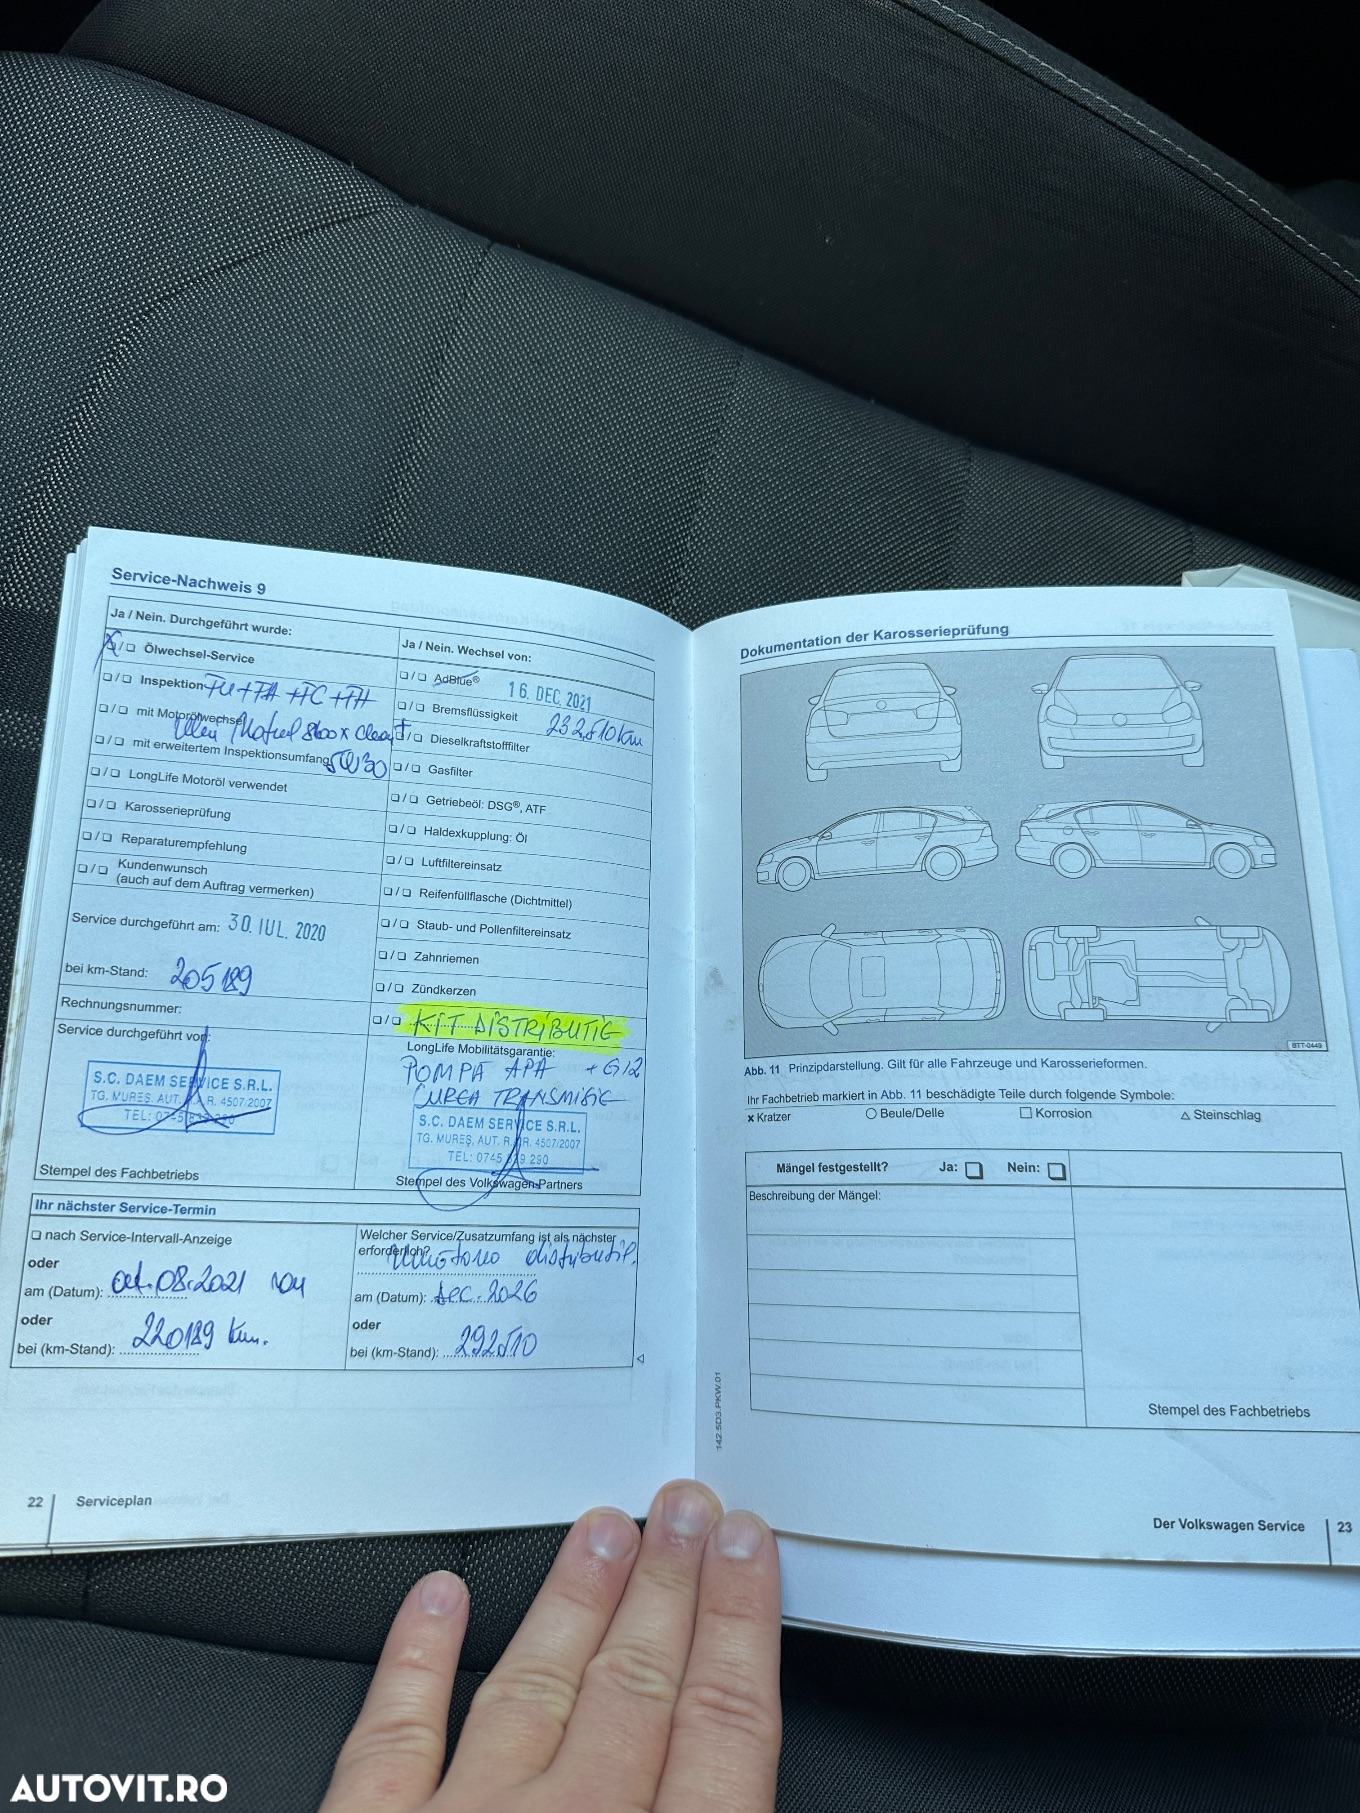 Service-Nachweis 9
Ja / Nein. Durchgeführt wurde:
Ölwechsel-Service
Inspektion FU+FA+FC+FH
mit Motorölwechsel
Ulei Motul 8100 x clean+
mit erweitertem Inspektionsumfang 5W30
LongLife Motoröl verwendet
Karosserieprüfung
Reparaturempfehlung
Kundenwunsch
(auch auf dem Auftrag vermerken)
Service durchgeführt am: 30. IUL. 2020
bei km-Stand: 205189
Rechnungsnummer:
Service durchgeführt von:
S.C. DAEM SERVICE S.R.L.
TG. MUREŞ, AUT. R.A.R. 4507/2007
TEL: 0745
Stempel des Fachbetriebs
Ja / Nein. Wechsel von:
AdBlue®
16. DEC. 2021
Bremsflüssigkeit 232.510 km
Dieselkraftstofffilter
Gasfilter
Getriebeöl: DSG®, ATF
Haldexkupplung: Öl
Luftfiltereinsatz
Reifenfüllflasche (Dichtmittel)
Staub- und Pollenfiltereinsatz
Zahnriemen
Zündkerzen
KIT DISTRIBUTIE
LongLife Mobilitätsgarantie:
POMPA APA + G12
CUREA TRANSMISIE
S.C. DAEM SERVICE S.R.L.
TG. MUREŞ, AUT. R.A.R. 4507/2007
TEL: 0745 290
Stempel des Volkswagen-Partners
Ihr nächster Service-Termin
nach Service-Intervall-Anzeige
oder
am (Datum): 08.2021
oder
bei (km-Stand): 220189 km.
Welcher Service/Zusatzumfang ist als nächster
erforderlich? distributie
am (Datum): dec. 2026
oder
bei (km-Stand): 292510
22 Serviceplan
Dokumentation der Karosserieprüfung
BTT-0449
Abb. 11 Prinzipdarstellung. Gilt für alle Fahrzeuge und Karosserieformen.
Ihr Fachbetrieb markiert in Abb. 11 beschädigte Teile durch folgende Symbole:
x Kratzer Beule/Delle Korrosion Steinschlag
Mängel festgestellt? Ja: Nein:
Beschreibung der Mängel:
Stempel des Fachbetriebs
142.5D3.PKW.01
Der Volkswagen Service 23
AUTOVIT.RO